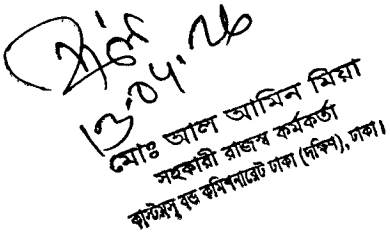 ১৩.০৭.২৬
মোঃ আল আমিন মিয়া
সহকারী রাজস্ব কর্মকর্তা
কাস্টমস্ বন্ড কমিশনারেট ঢাকা (দক্ষিণ), ঢাকা।